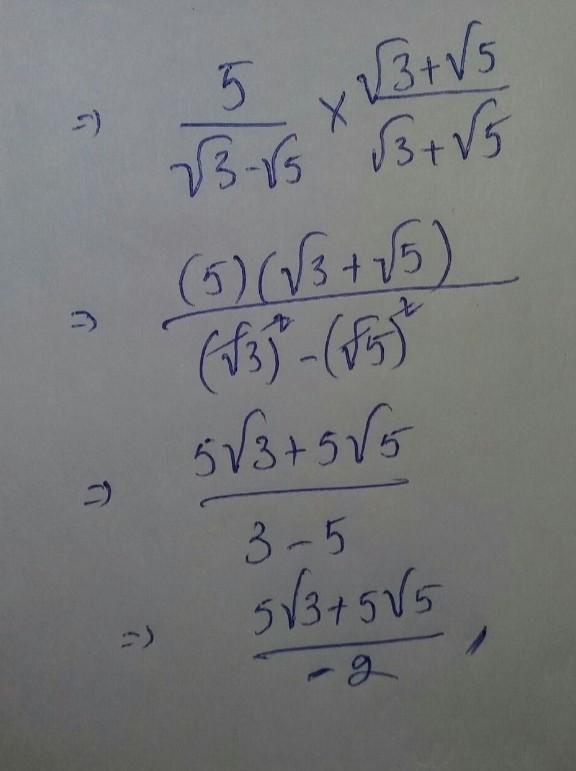 ⇒ 5/(√3-√5) × (√3+√5)/(√3+√5)
⇒ (5)(√3+√5)/((√3)²-(√5)²)
⇒ (5√3+5√5)/(3-5)
⇒ (5√3+5√5)/(-2)